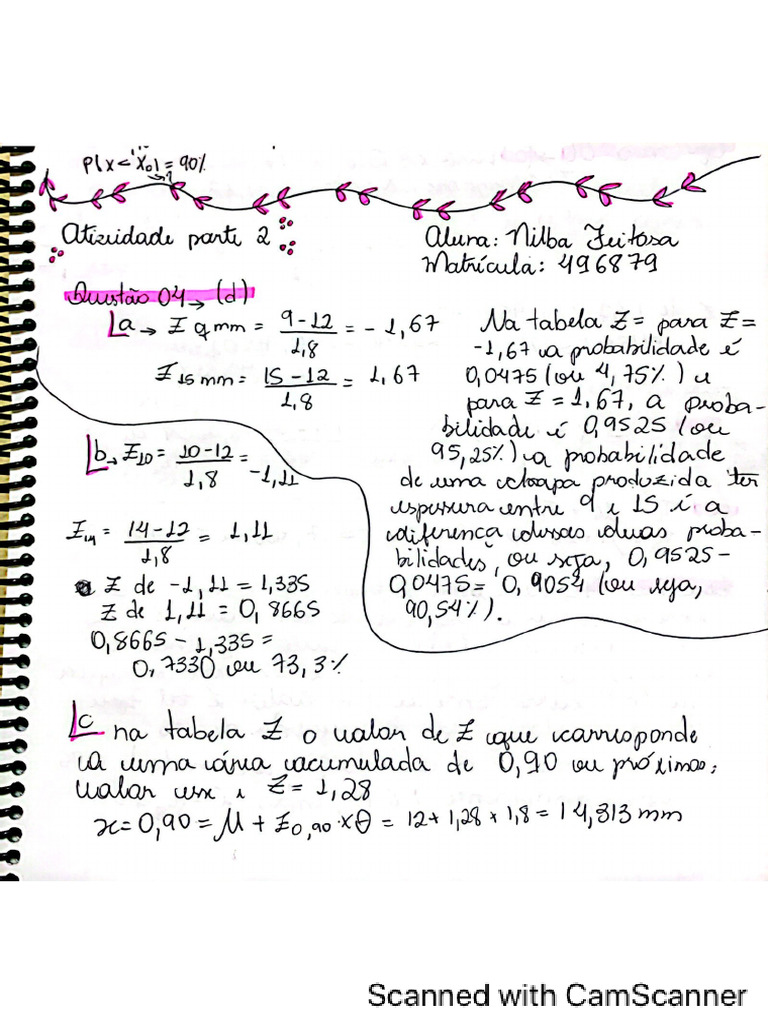 P(x < x0) = 90%
Atividade parte 2
Aluna: Nilba Feitosa
Matrícula: 496879
Questão 04 → (d)
a → Z 9 mm = 9-12 / 1,8 = - 1,67
Z 15 mm = 15-12 / 1,8 = 1,67
Na tabela Z = para Z =
-1,67 a probabilidade é
0,0475 (ou 4,75%) e
para Z = 1,67, a proba-
bilidade é 0,9525 (ou
95,25%) a probabilidade
de uma chapa produzida ter
espessura entre 9 e 15 é a
diferença dessas duas proba-
bilidades, ou seja, 0,9525-
0,0475= 0,9054 (ou seja,
90,54%).
b → Z10 = 10-12 / 1,8 = -1,11
Z14 = 14-12 / 1,8 = 1,11
Z de -1,11 = 1,335
Z de 1,11 = 0,8665
0,8665 - 1,335 =
0,7330 ou 73,3%
c na tabela Z o valor de Z que corresponde
a uma área acumulada de 0,90 ou próximo;
valor Z = 1,28
x = 0,90 = μ + Z0,90 · x θ = 12 + 1,28 x 1,8 = 14,313 mm
Scanned with CamScanner